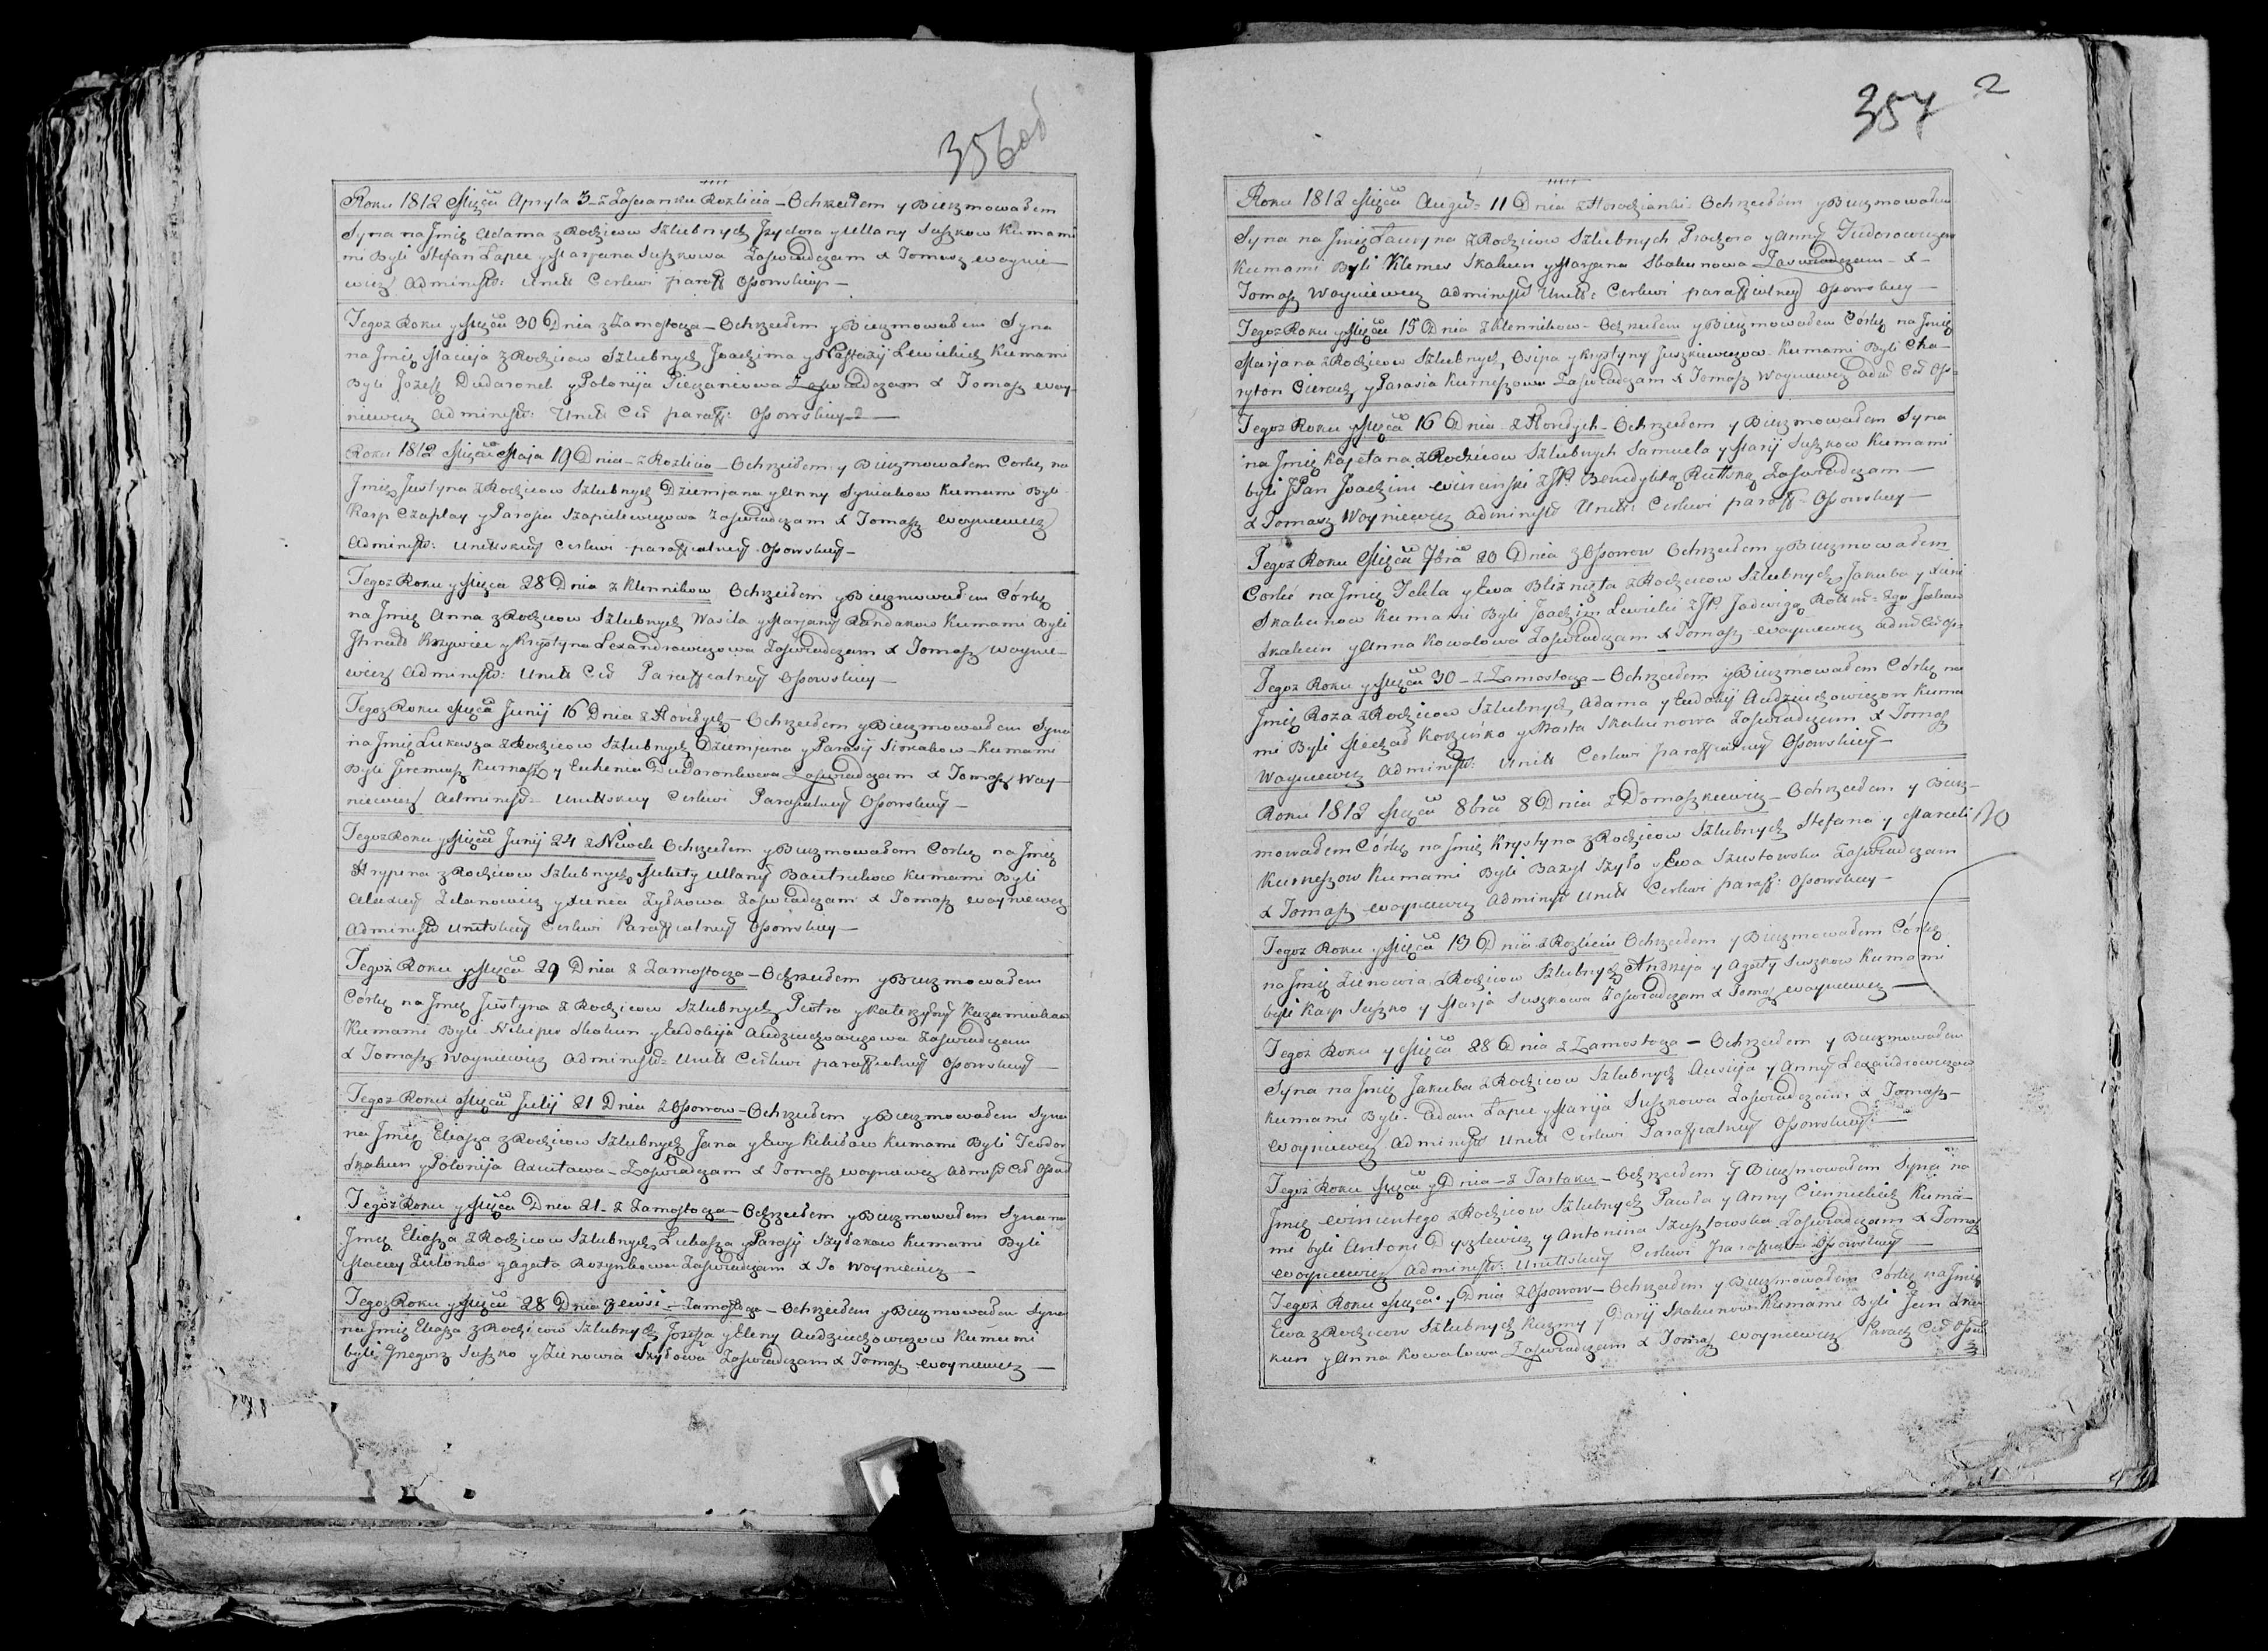 356 об
Roku 1812 Mięcă Apryla 3 z Zascianku Rozlicia – Ochrzciłem y Bierzmowałem
Syna na Jmię Adama z Rodziców Szlubnych Jzydora y Ullany Suszkow Kuma
mi Byli Stefan Łapec y Marjana Suszkowa Zaswiadczam X Tomasz Woynie-
wicz Administ: Unitt Cerkwi paraff Ossowskiey –
Tegoż Roku y Mięcă 30 Dnia z Zamostocza – Ochrzciłem y Bierzmowałem Syna
na Jmię Macieja z Rodziców Szlubnych Joachima y Nastazÿi Lewickich Kumami
Byli Jozeff Dudaronek y Polonija Zaswiadczam X Tomasz Woy-
niewicz Administ: Unitt Ceř paraff: Ossowskiey
Roku 1812 Mięcă Maja 19 Dnia – z Rozlicia – Ochrzciłem y Bierzmowałem Corkę na
Jmię Justyna z Rodziców Szlubnych Dziemjana y Anny Kumami Byli
Karp Czaplay y Parasia Szapielewiczowa Zaswiadczam X Tomasz Woyniewicz
Administ: Unittskiey Cerkwi paraffialney Ossowskiey –
Tegoż Roku y Mięca 28 Dnia z Klennikow Ochrzciłem y Bierzmowałem Córkę
na Jmię Anna z Rodziców Szlubnych Wasila y Marjany Randakow Kumami Byli
Krzywiec y Krystyna Lexandrowiczowa Zaswiadczam X Tomasz Woynie-
wicz Administ: Unitt Ceř Paraffialney Ossowskiey –
Tegoż Roku Mięcă Junij 16 Dnia z Howdych – Ochrzciłem y Bierzmowałem Syna
na Jmię Łukasza z Rodziców Szlubnych Dziemjana y Parasÿi Kumami
Byli Jeremiasz y Euhenia Dudaronkowa Zaswiadczam X Tomasz Woy-
niewicz Administ= Unittskiey Cerkwi Parafialney Ossowskiey –
Tegoż Roku y Mięcă Junij 24 z Niwek Ochrzciłem y Bierzmowałem Corkę na Jmię
Hrypina z Rodziców Szlubnych Mikity Ullany Kumami Byli
Alexiey Zelanowicz y Zybkowa Zaswiadczam X Tomasz Woyniewicz
Administ Unitskiey Cerkwi Paraffialney Ossowskiey –
Tegoż Roku y Mięcă 29 Dnia z Zamostocza – Ochrzciłem y Bierzmowałem
Córkę na Jmię Justyna z Rodziców Szlubnych Piotra y Katerzyny
Kumami Byli Nikiper Skakun y Eudokija Audziuchowiczowa Zaswiadczam
X Tomasz Woyniewicz Administ= Unitt Cerkwi paraffialney Ossowskiey –
Tegoż Roku Mięcă Julij 21 Dnia z Ossowow – Ochrzciłem y Bierzmowałem Syna
na Jmię Eliasza z Rodziców Szlubnych Jana y Ewy Kumami Byli Teodor
Skakun y Polonija – Zaswiadczam X Tomasz Woyniewicz
Tegoż Roku y Mięcă Dnia 21 – z Zamostocza – Ochrzciłem y Bierzmowałem Syna na
Jmię Eliasza z Rodziców Szlubnych Łukasza y Parasÿi Kumami Byli
Maciey y Agata Zaswiadczam X To Woyniewicz –
Tegoż Roku y Mięcă 28 Dnia z Zamostocza – Ochrzciłem y Bierzmowałem Syna
na Jmię Eliasza z Rodziców Szlubnych Jozeffa y Eleny Audziuchowiczow Kumami
byli Gregorz Suszko y Zienowia Zaswiadczam X Tomasz Woyniewicz –
357 2
Roku 1812 Mięcă Augů= 11 Dnia z Horodzianki – Ochrzciłem y Bierzmowałem
Syna na Jmię Ławryna z Rodziców Szlubnych Prochora y Anny Fiedorowiczow
Kumami Byli Klemes Skakun y Marjana Skakunowa Zaswiadczam – X –
Tomasz Woyniewicz Administ Unitt: Cerkwi paraffialney Ossowskiey –
Tegoż Roku y Mięcă 15 Dnia z Klennikow – Ochrzciłem y Bierzmowałem Córkę na Jmię
Marjana z Rodziców Szlubnych Osipa y Krystyny Juszkiewiczow Kumami Byli Cha-
ryton y Parasia Zaswiadczam X Tomasz Woyniewicz
Tegoż Roku y Mięcă 16 Dnia z Howdych – Ochrzciłem y Bierzmowałem Syna
na Jmię Kajetana z Rodziców Szlubnych Samuela y Marÿi Suszkow Kumami
byli JPan Joachim z JP. Benedyktą Zaswiadczam –
X Tomasz Woyniewicz Administ Unitt: Cerkwi paraff – Ossowskiey –
Tegoż Roku Mięcă 7bră 20 Dnia z Ossowow Ochrzciłem y Bierzmowałem
Corkē na Jmię Tekla y Ewa Bliznięta z Rodziców Szlubnych Jakuba y
Skakunow Kumami Byli Joachim Lewicki z JP. Jadwigą
Skakun y Anna Kowalowa Zaswiadczam X Tomasz Woyniewicz
Tegoż Roku y Mięcă 30 – z Zamostocza – Ochrzciłem y Bierzmowałem Córkę na
Jmię Roza z Rodziców Szlubnych Adama y Eudokÿi Audziuchowiczow Kuma
mi Byli Michał y Marta Skakunowa Zaswiadczam X Tomasz
Woyniewicz Administ: Unitt Cerkwi paraffialney Ossowskiey –
Roku 1812 Mięcă 8bră 8 Dnia z Domaszkiewicz – Ochrzciłem y Bierz-
mowałem Córkę na Jmię Krystyna z Rodziców Szlubnych Stefana y
Kurneszow Kumami Byli Bazyl Szyło y Ewa Szustowska Zaswiadczam
X Tomasz Woyniewicz Administ Unitt Cerkwi paraff: Ossowskiey –
Tegoż Roku y Mięcă 13 Dnia z Rozlicia Ochrzciłem y Bierzmowałem Córkę
na Jmię Zienowia z Rodziców Szlubnych Andrzeja y Agaty Suszkow Kumami
byli Karp Suszko y Marja Suszkowa Zaswiadczam X Tomasz Woyniewicz –
Tegoż Roku y Mięcă 28 Dnia z Zamostocza – Ochrzciłem y Bierzmowałem
Syna na Jmię Jakuba z Rodziców Szlubnych y Anny Lexandrowiczow
Kumami Byli – Adam Łapec y Marija Suszkowa Zaswiadczam X Tomasz –
Woyniewicz Administ Unitt Cerkwi Paraffialney Ossowskiey –
Tegoż Roku Mięcă y Dnia – z Tartaku – Ochrzciłem y Bierzmowałem Syna na
Jmię Wincentego z Rodziców Szlubnych Pawła y Anny Kuma-
mi byli Antoni y Antonina Szustowska Zaswiadczam X Tomasz
Woyniewicz Administ: Unittskiey Cerkwi paraffial= Ossowskiey –
Tegoż Roku Mięcă y Dnia z Ossowow – Ochrzciłem y Bierzmowałem Córkę na Jmię
Ewa z Rodziców Szlubnych Kuzmy y Darÿi Skakunow Kumami Byli Jan Ska-
kun y Anna Kowalowa Zaswiadczam X Tomasz Woyniewicz